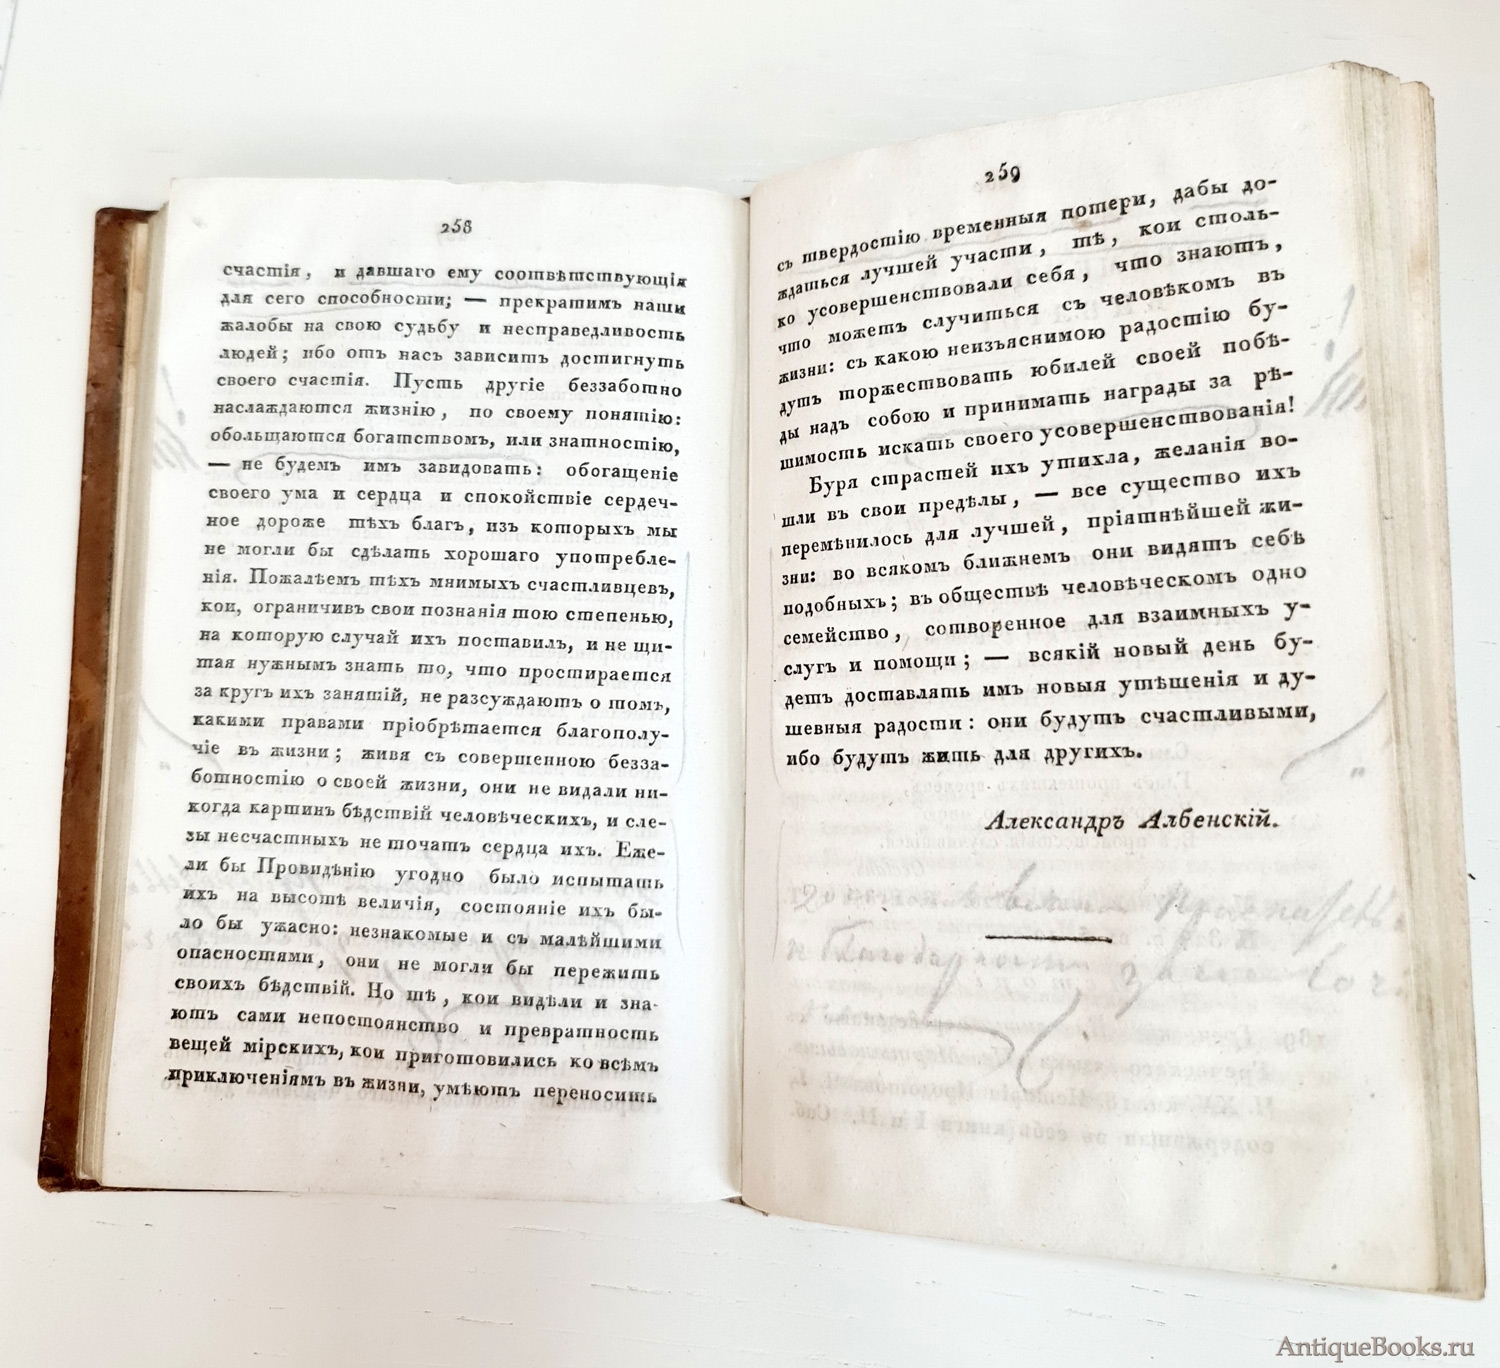 258
счастія, и давшаго ему соотвѣтствующія
для сего способности; — прекратимъ наши
жалобы на свою судьбу и несправедливость
людей; ибо отъ насъ зависитъ достигнуть
своего счастія. Пусть другіе беззаботно
наслаждаются жизнію, по своему понятію:
обольщаются богатствомъ, или знатностію,
— не будемъ имъ завидовать: обогащеніе
своего ума и сердца и спокойствіе сердеч-
ное дороже тѣхъ благ, изъ которыхъ мы
не могли бы сдѣлать хорошаго употребле-
нія. Пожалѣемъ тѣхъ мнимыхъ счастливцев,
кои, ограничив свои познанія тою степенью,
на которую случай ихъ поставилъ, и не щи-
тая нужнымъ знать то, что простирается
за кругъ ихъ занятій, не разсуждаютъ о томъ,
какими правами пріобрѣтается благополу-
чіе въ жизни; живя съ совершенною безза-
ботностію о своей жизни, они не видали ни-
когда картинъ бѣдствій человѣческихъ, и сле-
зы несчастныхъ не точатъ сердца ихъ. Еже-
ли бы Провидѣнію угодно было испытать
ихъ на высотѣ величія, состояніе ихъ бы-
ло бы ужасно: незнакомые и съ малѣйшими
опасностями, они не могли бы пережить
своихъ бѣдствій. Но тѣ, кои видѣли и зна-
ютъ сами непостоянство и превратность
вещей мірскихъ, кои приготовились ко всѣмъ
приключеніямъ въ жизни, умѣютъ переносить
259
съ твердостію временныя потери, дабы до-
ждаться лучшей участи, тѣ, кои столь-
ко усовершенствовали себя, что знаютъ,
что можетъ случиться съ человѣкомъ въ
жизни: съ какою неизъяснимою радостію бу-
дутъ торжествовать юбилей своей побѣ-
ды надъ собою и принимать награды за рѣ-
шимость искать своего усовершенствованія!
Буря страстей ихъ утихла, желанія во-
шли въ свои предѣлы, — все существо ихъ
перемѣнилось для лучшей, пріятнѣйшей жи-
зни: во всякомъ ближнемъ они видятъ себѣ
подобныхъ; въ обществѣ человѣческомъ одно
семейство, сотворенное для взаимныхъ у-
слугъ и помощи; — всякій новый день бу-
детъ доставлять имъ новыя утѣшенія и ду-
шевныя радости: они будутъ счастливыми,
ибо будутъ жить для другихъ.
Александръ Албенскій.
AntiqueBooks.ru